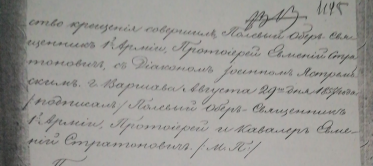 1145
ство крещенія совершилъ, Полевый Оберъ Свя-
щенникъ 1й Арміи, Протоіерей Евменій Стра-
тоновичъ, съ Діакономъ Іоанномъ
скимъ. г. Варшава Августа 29 дня
/подписалъ/ Полевый Оберъ-Священникъ
1й Арміи, Протоіерей и Кавалеръ Евме-
ній Стратоновичъ. /М.П./